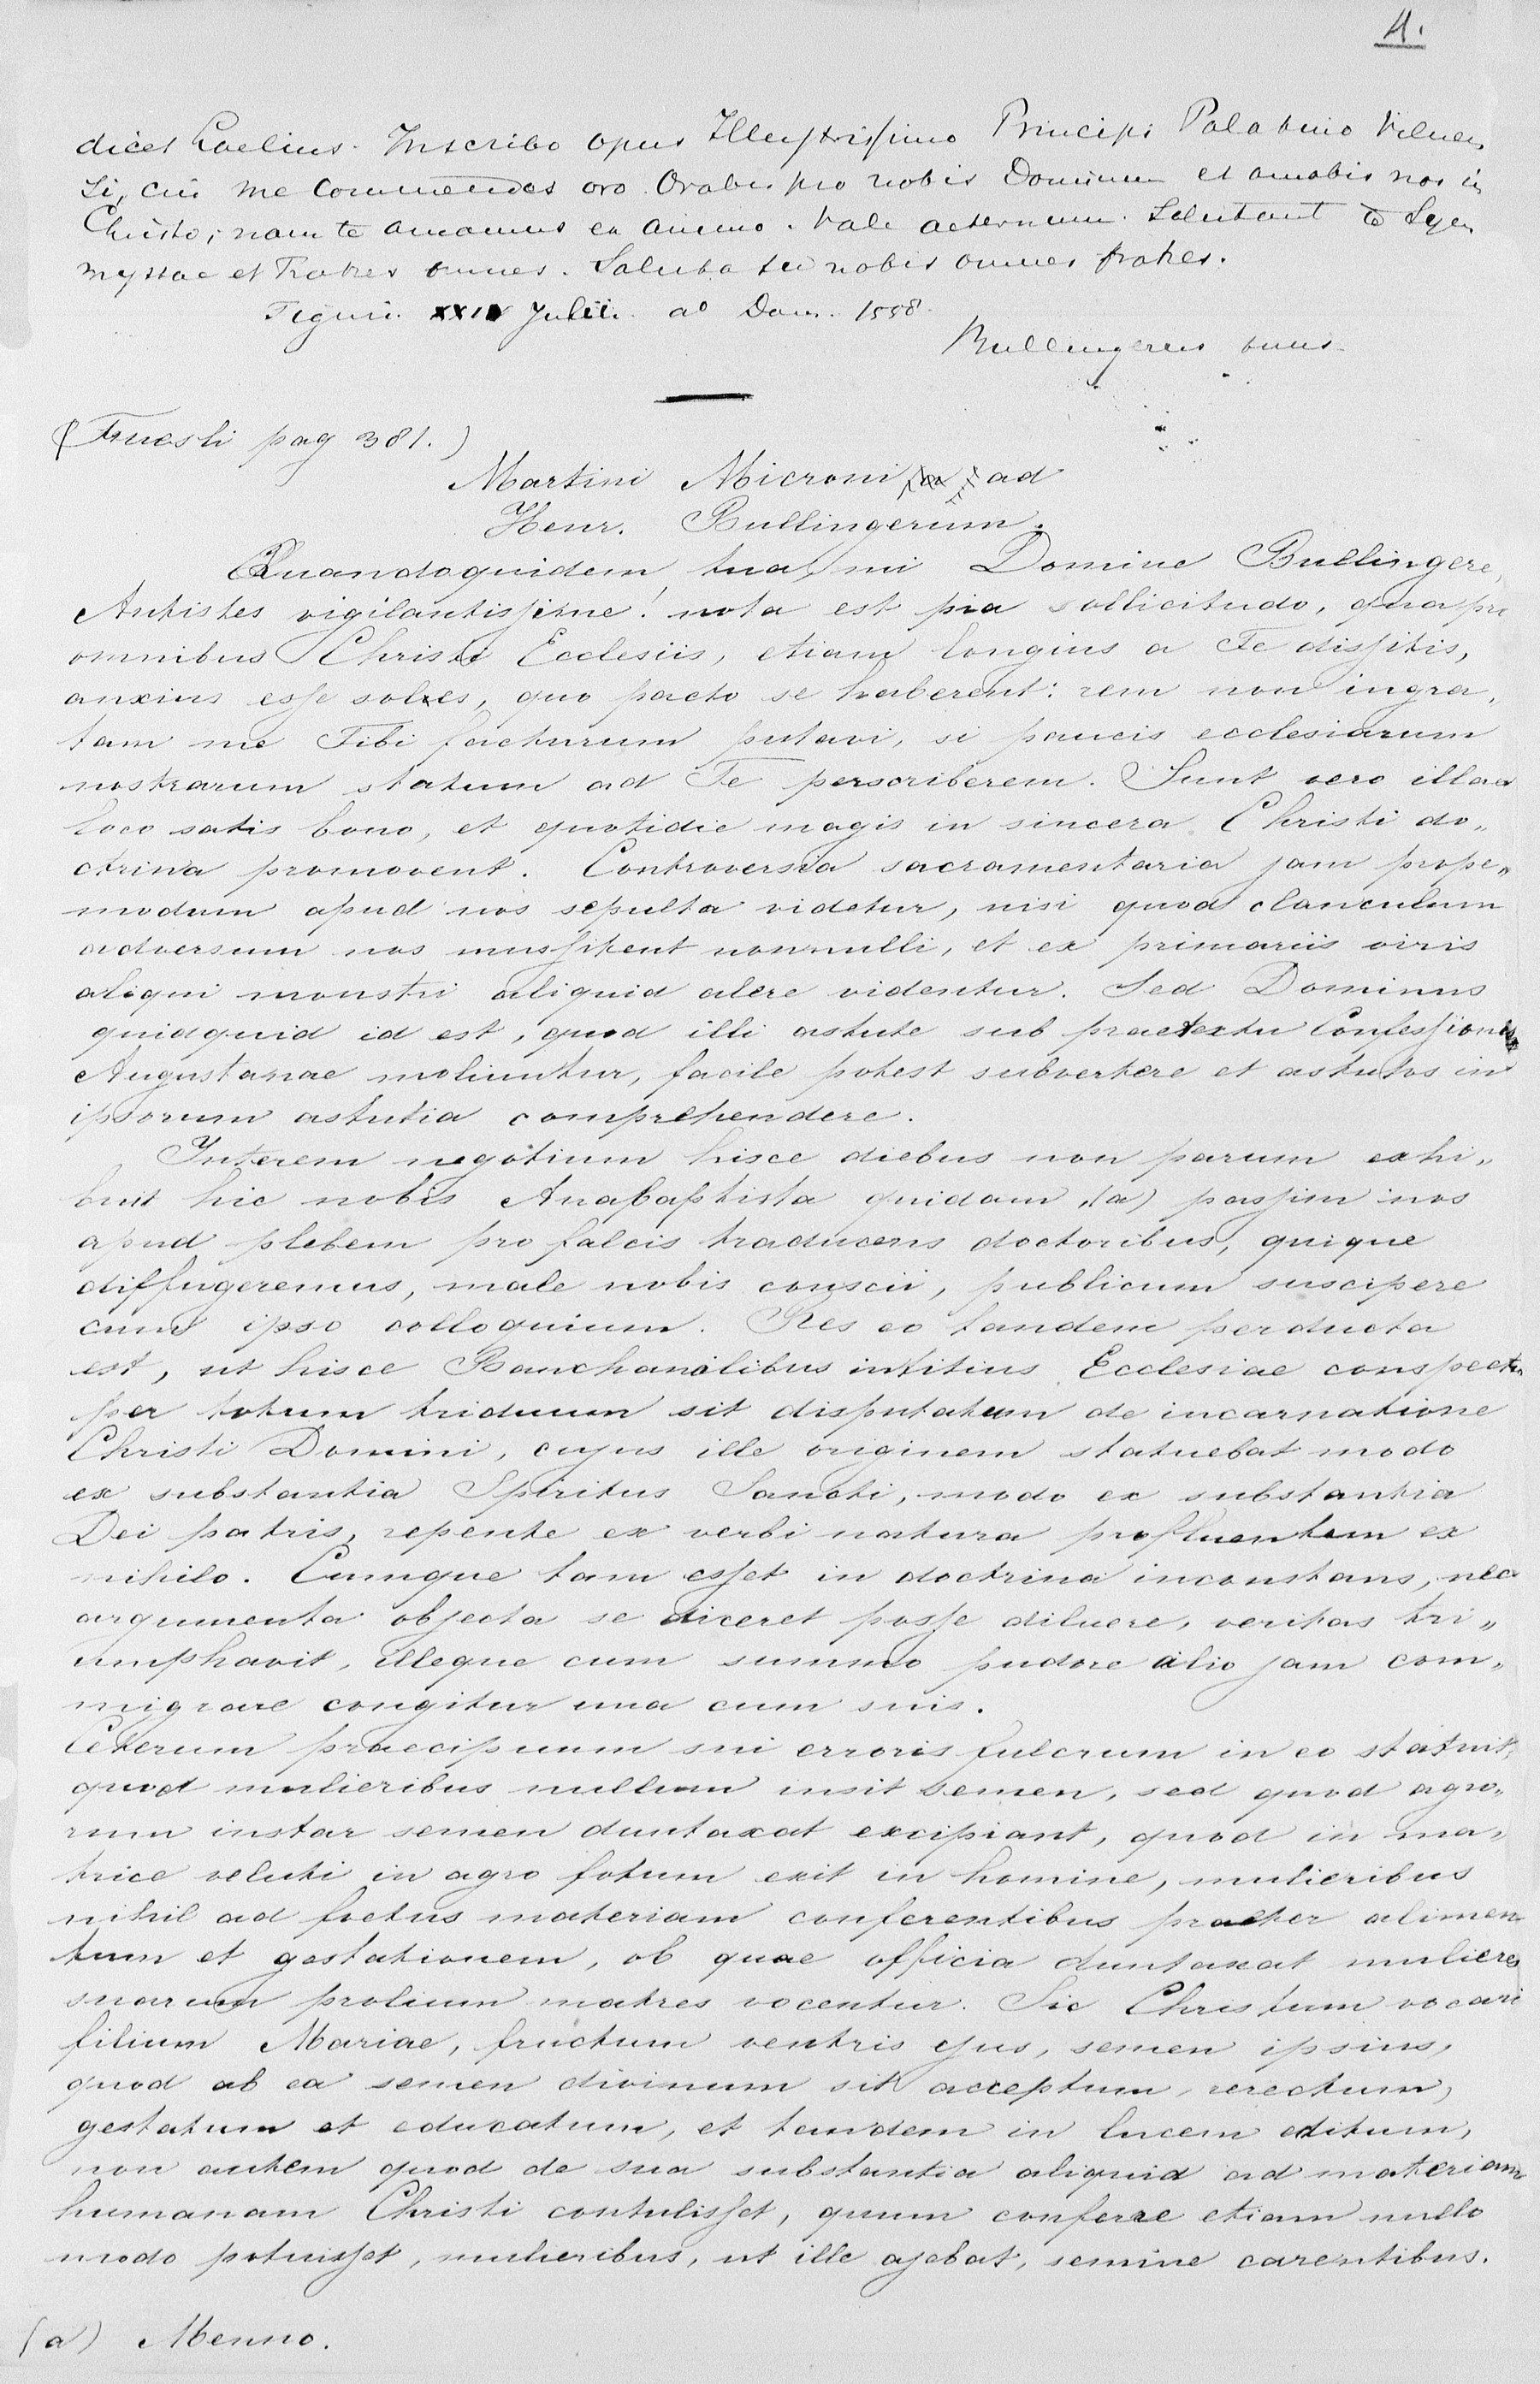 4.
dicet Laelius. Inscribo opus Illustrissimo Principi Palatino Vilnen„
si, cui me commendes oro. Orabis pro nobis Dominum et amabis nos in
Christo; nam te amamus ex animo. Vale aeternum. Salutant te Sym„
myssae et Fratres omnes. Saluta tu nobis omnes fratres.
Tiguri. XXIV Julii. ao Dom. 1558.
Bullingerus tuus.
(Fuesli pag 381.)
Martini Microni ad
Henr. Bullingerum.
Quandoquidem tua, mi Domine Bullingere,
Antistes vigilantissime! nota est pia sollicitudo, qua pro
omnibus Christi Ecclesiis, etiam longius a Te dissitis,
anxius esse soles, quo pacto se haberent: rem non ingra„
tam me Tibi facturum putavi, si paucis ecclesiarum
nostrarum statum ad Te perscriberem. Sunt vero illae
loco satis bono, et quotidie magis in sincera Christi do„
ctrina promovent. Controversia sacramentaria jam prope„
modum apud nos sepulta videtur, nisi quod clanculum
adversum nos mussitent nonnulli, et ex primariis viris
aliqui monstri aliquid alere videntur. Sed Dominus
quidquid id est, quod illi astute sub praetextu Confessionis
Augustanae moliuntur, facile potest subvertere et astutos in
ipsorum astutia comprehendere.
Interem negotium hisce diebus non parum exhi„
buit hic nobis Anabaptista quidam, (a) passim nos
apud plebem pro falcis traducens doctoribus, quique
diffugeremus, male nobis conscii, publicum suscipere
cum ipso colloquium. Res eo tandem perducta
est, ut hisce Bauchanalibus intitius Ecclesiae conspectu
per totum triduum sit disputatum de incarnatione
Christi Domini, cujus ille originem statuebat modo
ex substantia Spiritus Sancti, modo ex substantia
Dei patris, repente ex verbi natura profluentem ex
nihilo. Cumque tam esset in doctrina inconstans, nec
argumenta objecta se diceret posse diluere, veritas tri„
umphavit, illeque cum summo pudore alio jam com„
migrare congitur una cum suis.
Ceterum praecipuum sui erroris fulcrum in eo statuit,
quod mulieribus nullum insit semen, sed quod agro„
rum instar semen duntaxat excipiant, quod in ma„
trice veluti in agro fotum exit in homine, mulieribus
nihil ad foetus materiam conferentibus praeter alimen„
tum et gestationem, ob quae officia duntaxat mulieres
suarum prolium matres vocentur. Sic Christum vocari
filium Mariae, fructum ventris ejus, semen ipsius,
quod ab ea semen divinum sit acceptum, rerectum,
gestatum et educatum, et tandem in lucem editum,
non autem quod de sua substantia aliquid ad materiam
humanam Christi contulisset, quum conferre etiam nullo
modo potuisset, mulieribus, ut ille ajebat, semine carentibus.
(a) Menno.